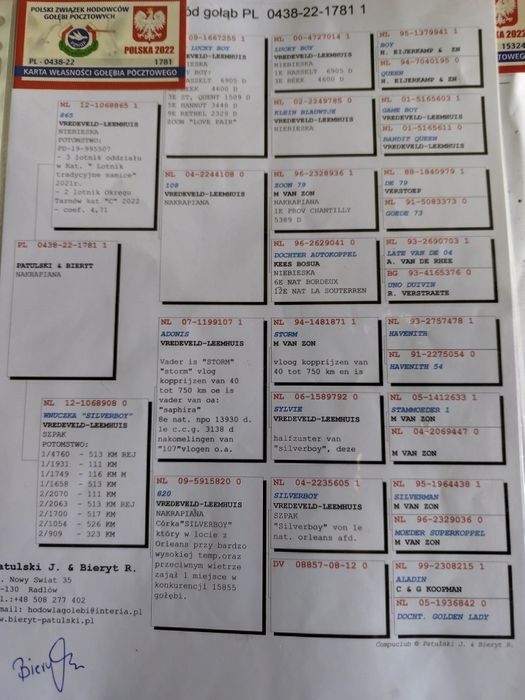 POLSKI ZWIĄZEK HODOWCÓW
GOŁĘBI POCZTOWYCH
POLSKA 2022
PL - 0438-22 1781
KARTA WŁASNOŚCI GOŁĘBIA POCZTOWEGO
ód gołąb PL 0438-22-1781 1
POLSKA 2022
15324
TOWEGO
PL 0438-22-1781 1
PATULSKI & BIERYT
NAKRAPIANA
NL 12-1068865 1
865
VREDEVELD-LEEMHUIS
NIEBIESKA
POTOMSTWO:
PD-19-995507
- 3 lotnik oddziału
w Kat. " Lotnik
tradycyjne samice"
2021r.
- 2 lotnik Okręgu
Tarnów kat "C" 2022
- coef. 4,71
NL 12-1068908 0
WNUCZKA "SILVERBOY"
VREDEVELD-LEEMHUIS
SZPAK
POTOMSTWO:
1/4760 - 513 KM REJ
1/1931 - 111 KM
1/1749 - 116 KM M
1/1658 - 513 KM
2/2070 - 111 KM
2/2063 - 513 KM REJ
2/1700 - 517 KM
2/1054 - 526 KM
2/909 - 323 KM
09-1667255 1
LUCKY BOY
VREDEVELD-LEEMHUIS
NIEBIESKA
BOY:
HASSELT 6905 D
BEEK 4600 D
3E ST. QUENT 1509 D
5E HANNUT 3448 D
9E RETHEL 2329 D
ZOON "LOVE PAIR"
NL 04-2244108 0
108
VREDEVELD-LEEMHUIS
NAKRAPIANA
NL 07-1199107 1
ADONIS
VREDEVELD-LEEMHUIS
Vader is "STORM"
"storm" vlog
kopprijzen van 40
tot 750 km oe is
vader van oa:
"saphira"
8e nat. npo 13930 d.
1e c.c.g. 3138 d
nakomelingen van
"107"vlogen o.a.
NL 09-5915820 0
820
VREDEVELD-LEEMHUIS
NAKRAPIANA
Córka"SILVERBOY"
który w locie z
Orleans przy bardzo
wysokiej temp.oraz
przeciwnym wietrze
zajął 1 miejsce w
konkurencji 15855
gołębi.
NL 00-4727014 1
LUCKY BOY
VREDEVELD-LEEMHUIS
NIEBIESKA
1E HASSELT 6905 D
1E BEEK 4600 D
NL 02-2249785 0
KLEIN BLAUWTJE
VREDEVELD-LEEMHUIS
NIEBIESKA
NL 96-2328936 1
ZOON 79
M VAN ZON
NAKRAPIANA
1E PROV CHANTILLY
5389 D
NL 96-2629041 0
DOCHTER AUTOKOPPEL
KEES BOSUA
NIEBIESKA
6E NAT BORDEUX
12E NAT LA SOUTERREN
NL 94-1481871 1
STORM
M VAN ZON
vloog kopprijzen van
40 tot 750 km en is
NL 06-1589792 0
SYLVIE
VREDEVELD-LEEMHUIS
halfzuster van
"silverboy", deze
NL 04-2235605 1
SILVERBOY
VREDEVELD-LEEMHUIS
SZPAK
"Silverboy" von 1e
nat. orleans afd.
DV 08857-08-12 0
NL 95-1379941 1
BOY
H. EIJERKAMP & ZN
NL 94-7040195 0
QUEEN
H. EIJERKAMP & ZN
NL 01-5165603 1
GAME BOY
VREDEVELD-LEEMHUIS
NL 01-5165611 0
BANDIT QUEEN
VREDEVELD-LEEMHUIS
NL 88-1840979 1
DE 79
VERSTOEP
NL 91-5083373 0
GOEDE 73
NL 93-2690703 1
LATE VAN DE 04
A. VAN DE RHEE
BG 93-4165376 0
UNO DUIVIN
R. VERSTRAETE
NL 93-2757478 1
HAVENITH
NL 91-2275054 0
HAVENITH 54
NL 05-1412633 1
STAMMOEDER 1
M VAN ZON
NL 04-2069447 0
M VAN ZON
NL 95-1964438 1
SILVERMAN
M VAN ZON
NL 96-2329036 0
MOEDER SUPERKOPPEL
M VAN ZON
NL 99-2308215 1
ALADIN
C & G KOOPMAN
NL 05-1936842 0
DOCHT. GOLDEN LADY
atulski J. & Bieryt R.
. Nowy Swiat 35
-130 Radłów
l.:+48 508 277 402
mail: hodowlagolebi@interia.pl
w.bieryt-patulski.pl
Compuclub © Patulski J. & Bieryt R.